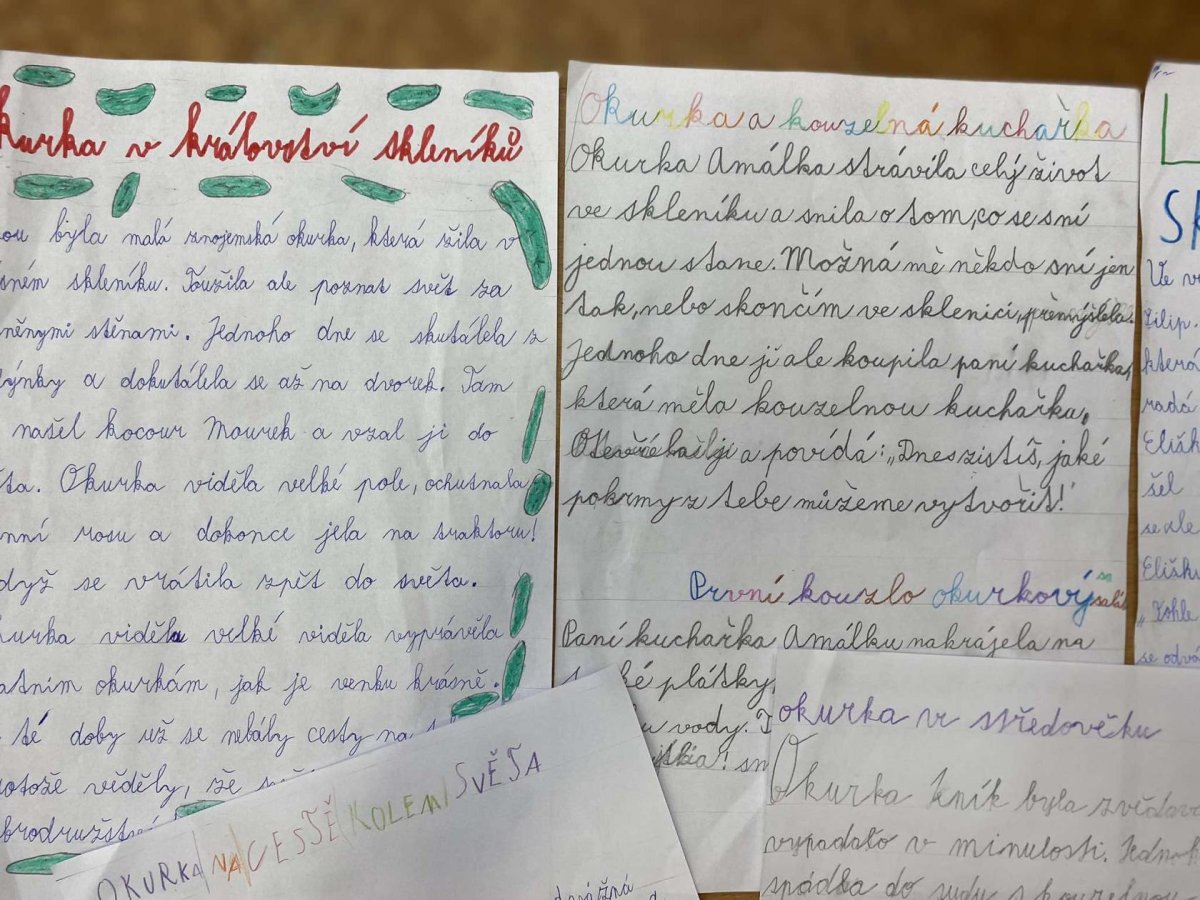 kurka v království skleníků
ou byla malá znojemská okurka, která žila v
sném skleníku. Toužila ale poznat svět za
něnymi stěnami. Jednoho dne se skutálela z
ýnky a dokutálela se až na dvorek. Tam
našel kocour Mourek a vzal ji do
ta. Okurka viděla velké pole, ochutnala
nní rosu a dokonce jela na traktoru!
dyž se vrátila zpět do světa.
urka viděla velké viděla vyprávěla
atním okurkám, jak je venku krásně.
té doby už se nebály cesty na
otože věděly, že
brodružství
OKURKA NA CESTĚ KOLEM SVĚTA
Okurka a kouzelná kuchařka
Okurka Amálka strávila celý život
ve skleníku a snila o tom, co se sní
jednou stane. Možná mě někdo sní jen
tak, nebo skončím ve sklenici, přemýšlela.
Jednoho dne ji ale koupila paní kuchařka,
která měla kouzelnou kuchařku.
ji a povídá: „Dnes zistíš, jaké
pokrmy z tebe můžeme vytvořit!
První kouzlo okurkový salát
Paní kuchařka Amálku nakrájela na
ké plátky,
u vody.
okurka ve středověku
Okurka byla zvědavá
vypadalo v minulosti. Jednoh
spádla do sudu s kouzelnou
Ve
Filip.
která
radá
Elišk
šel
se ale
Elišku
„Tohle
se odvá